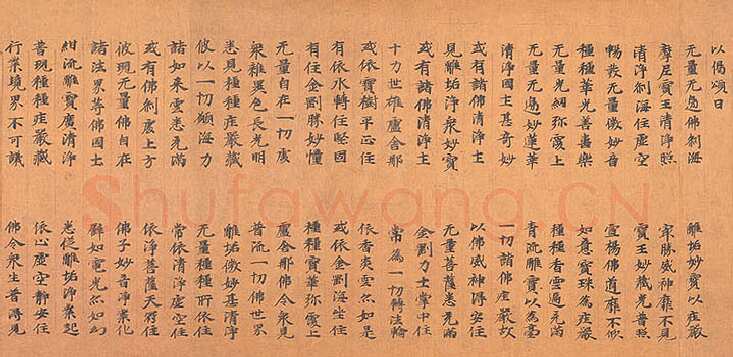 以偈頌曰
无量无邊佛剎海 離垢妙寶以莊嚴
摩尼寶王清淨照 最勝威神靡不見
清淨剎海住虛空 寶王妙藏光普照
暢發无量微妙音 宣揚佛道靡不
種種華光善畫樂 如意寶珠為莊嚴
无量光網弥覆上 種種香雲遍充滿
无量无邊妙蓮華 青流離寶以為臺
清淨國土甚奇妙 一切諸佛嚴故
或有諸佛清淨土 以佛威神得安住
見離垢淨衆妙寶 无量菩薩悉充滿
或有諸佛清淨土 金剛力士掌中住
十力世雄盧舍那 常為一切轉法輪
或依寶樹平正住 依香炎雲亦如是
有依水轉住堅固 或依金剛海坐住
有住金剛勝妙幢 種種寶華弥覆上
无量自在一切處 盧舍那佛令衆見
衆雜異色長光明 普流一切佛世界
悉見種種莊嚴藏 離垢微妙甚清淨
彼以一切願海力 无量種種所依住
諸如來雲悉充滿 常依清淨虛空住
或有佛剎處上方 依淨菩薩天冠住
彼現无量佛自在 佛子妙音淨業化
諸法界等佛國土 如電光亦如幻
紺流離寶廣清淨 悉從離垢淨業起
普現種種莊嚴藏 依止虛空靜安住
行業境界不可議 佛令衆生普得見
Shufawang.CN